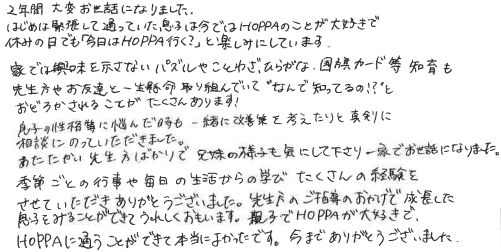 2年間 大変お世話になりました。
はじめは緊張して通っていた息子は今ではHOPPAのことが大好きで
休みの日でも「今日はHOPPA行く?」と楽しみにしています。
家では興味を示さないパズルやことわざ、ひらがな、国旗カード等 知育も
先生方やお友達と一生懸命取り組んでいて"なんで知ってるの!?"と
おどろかされることが たくさんあります!
息子の性格等に悩んだ時も 一緒に改善策を考えたりと真剣に
相談にのっていただきました。
あたたかい先生方ばかりで 兄妹の様子も気にして下さり一家でお世話になりました。
季節ごとの行事や毎日の生活からの学び たくさんの経験を
させていただき ありがとうございました。先生方のご指導のおかげで成長した
息子をみることができてうれしくおもいます。親子でHOPPAが大好きで、
HOPPAに通うことができて本当によかったです。今までありがとうございました。